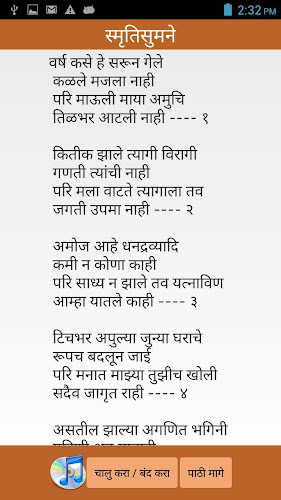 2:32 PM
स्मृतिसुमने
वर्ष कसे हे सरून गेले
कळले मजला नाही
परि माऊली माया अमुचि
तिळभर आटली नाही ---- १
कितीक झाले त्यागी विरागी
गणती त्यांची नाही
परि मला वाटते त्यागाला तव
जगती उपमा नाही ---- २
अमोज आहे धनद्रव्यादि
कमी न कोणा काही
परि साध्य न झाले तव यत्नाविण
आम्हा यातले काही ---- ३
टिचभर अपुल्या जुन्या घराचे
रूपच बदलून जाई
परि मनात माझ्या तुझीच खोली
सदैव जागृत राही ---- ४
असतील झाल्या अगणित भगिनी
चालु करा / बंद करा
पाठी मागे